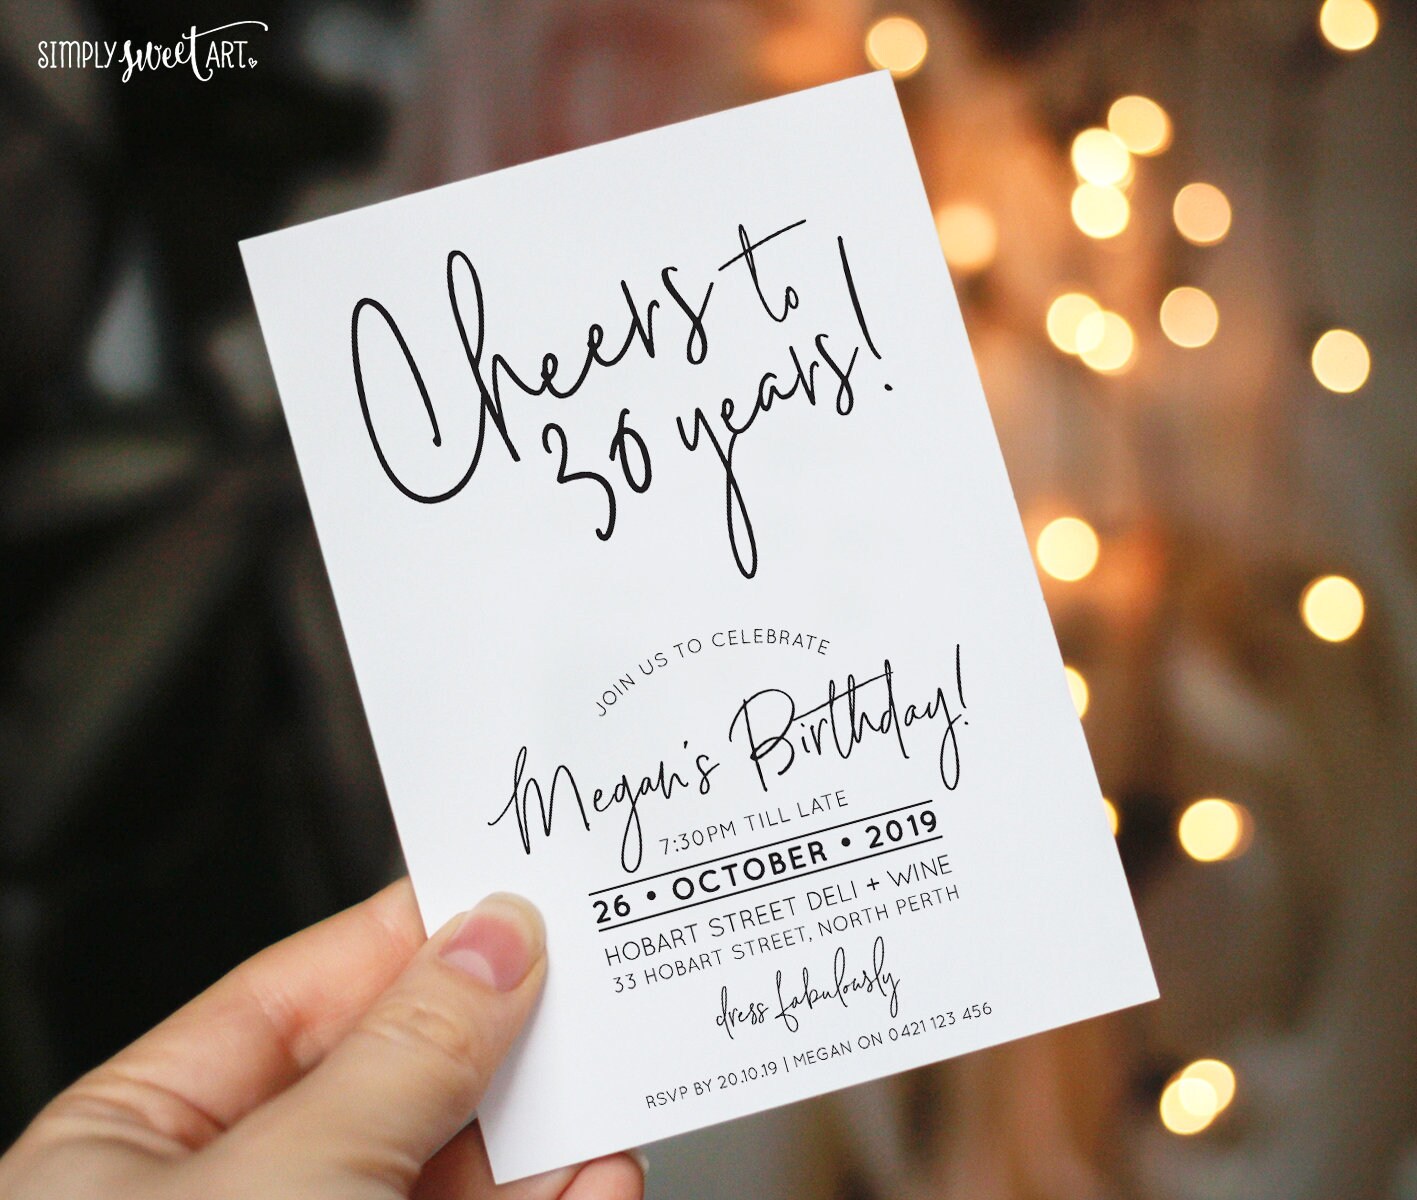 SIMPLY sweet ART.
Cheers to
30 years!
JOIN US TO CELEBRATE
Megan's Birthday!
7:30PM TILL LATE
26 • OCTOBER • 2019
HOBART STREET DELI + WINE
33 HOBART STREET, NORTH PERTH
dress fabulously
RSVP BY 20.10.19 | MEGAN ON 0421 123 456